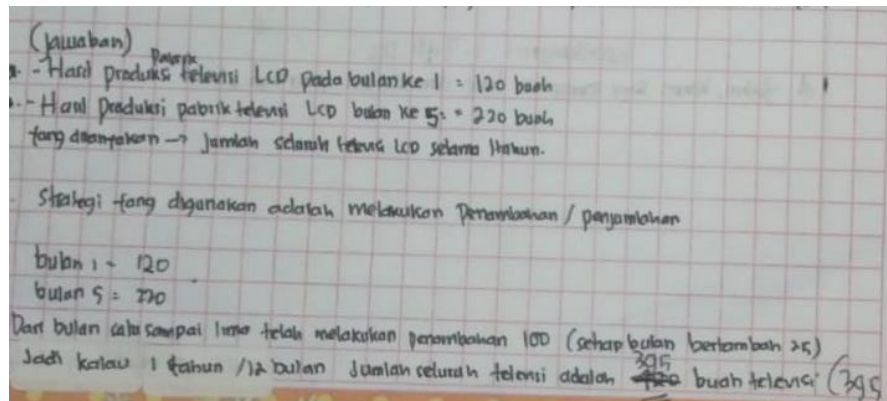 (Jawaban)
Pabrik
a. - Hasil produksi televisi LCD pada bulan ke 1 = 120 buah
- Hasil produksi pabrik televisi LCD bulan ke 5 = 220 buah
Yang ditanyakan → Jumlah seluruh televisi LCD selama 1 tahun.
Strategi yang digunakan adalah melakukan Penambahan / penjumlahan
bulan 1 = 120
bulan 5 = 220
Dari bulan satu sampai lima telah melakukan penambahan 100 (setiap bulan bertambah 25)
395
Jadi kalau 1 tahun / 12 bulan Jumlah seluruh televisi adalah buah televisi (395